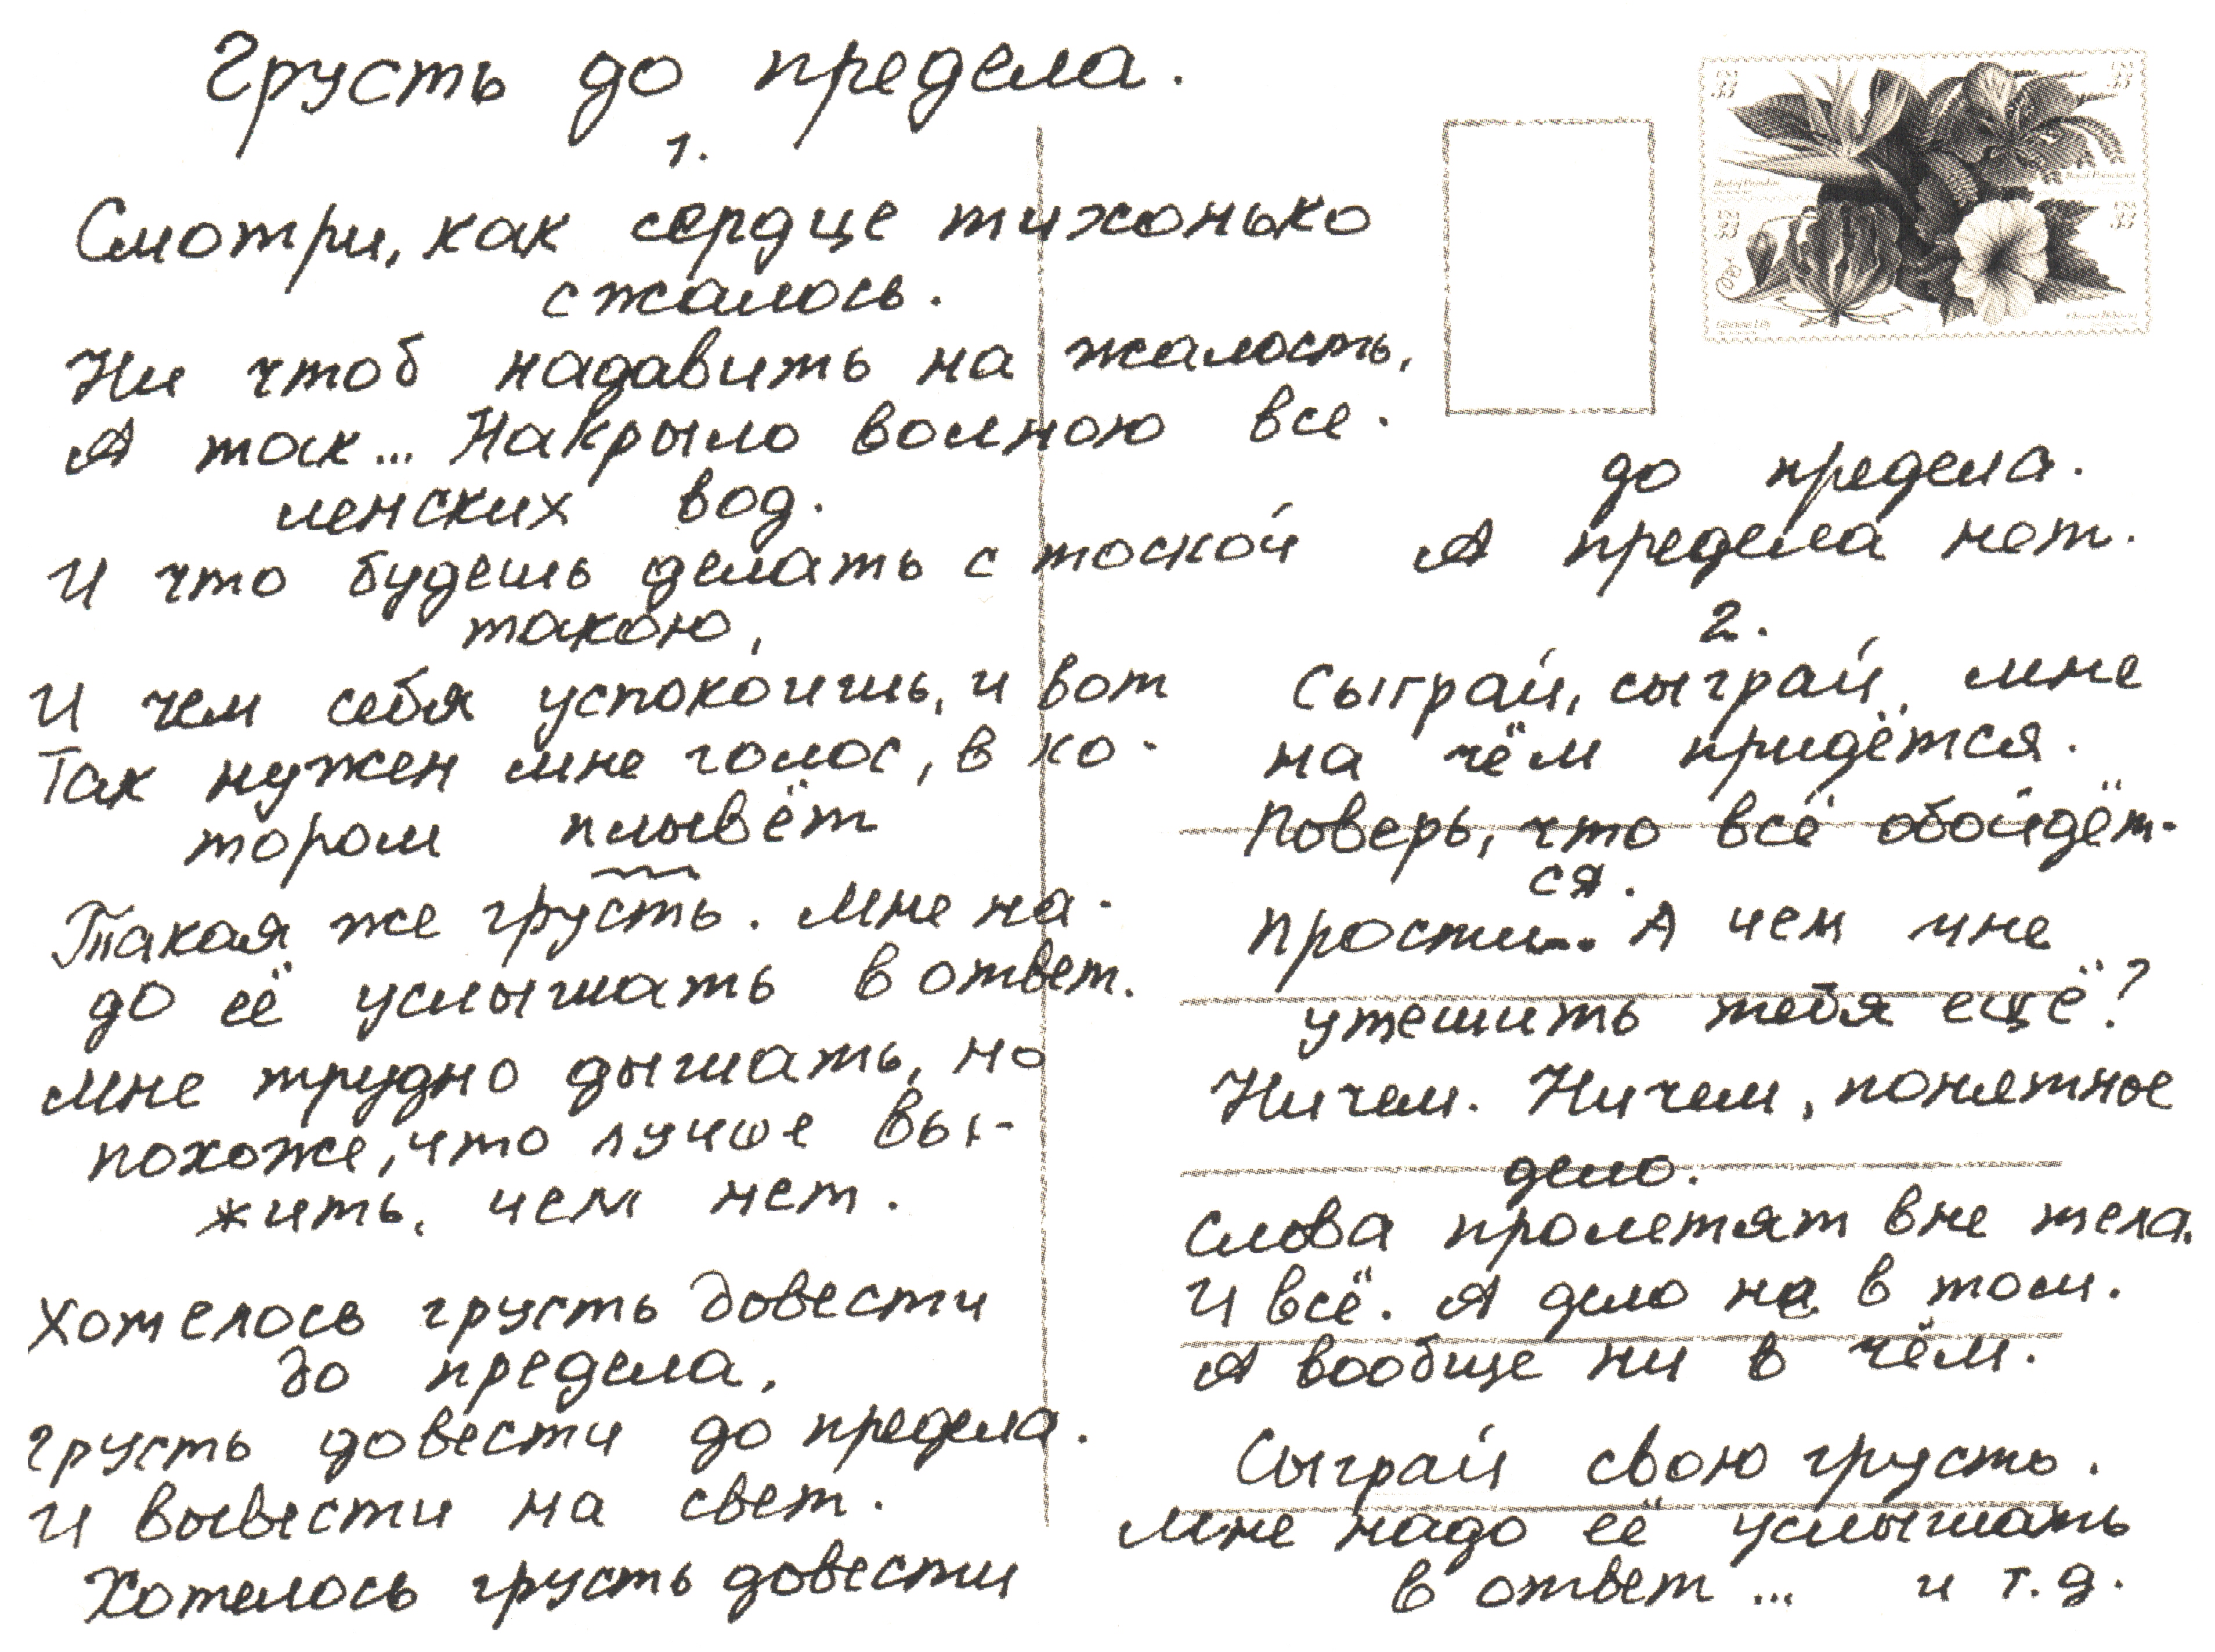 Грусть до предела.
1.
Смотри, как сердце тихонько
сжалось.
Ни чтоб надавить на жалость,
А так... Накрыло волною все-
ленских вод.
И что будешь делать с тоской
такою,
И чем себя успокоишь, и вот
Так нужен мне голос, в ко-
тором плывёт
Такая же грусть. Мне на-
до её услышать в ответ.
Мне трудно дышать, но
похоже, что лучше вы-
жить, чем нет.
Хотелось грусть довести
до предела,
Грусть довести до предела.
И вывести на свет.
Хотелось грусть довести
до предела.
А предела нет.
2.
Сыграй, сыграй, мне
на чём придётся.
Поверь, что всё обойдёт-
ся.
Прости... А чем мне
утешить тебя ещё?
Ничем. Ничем, понятное
дело.
Слова пролетят вне тела.
И всё. А дело не в том.
А вообще ни в чём.
Сыграй свою грусть.
Мне надо её услышать
в ответ... и т.д.